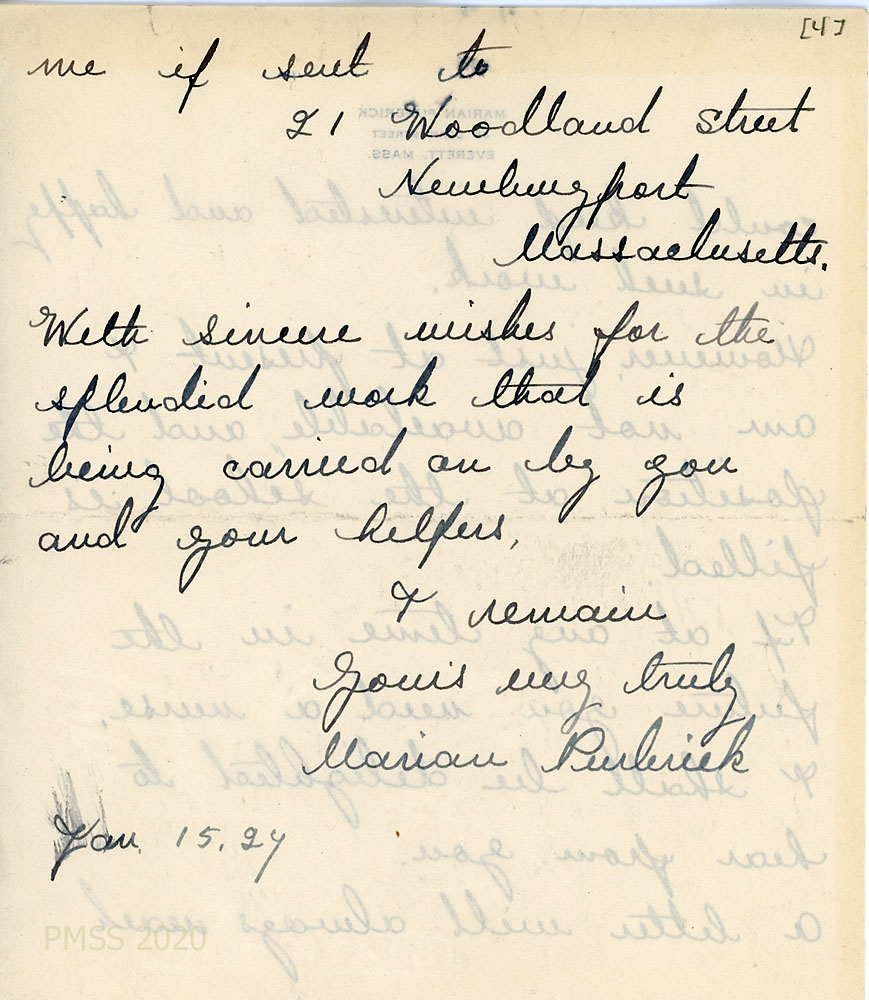 [4]
me if sent to
21 Woodland Street
Newburyport
Massachusetts.
With sincere wishes for the
splendid work that is
being carried on by you
and your helpers,
I remain
Yours very truly
Marian Purbrick
Jan. 15. 24
PMSS 2020